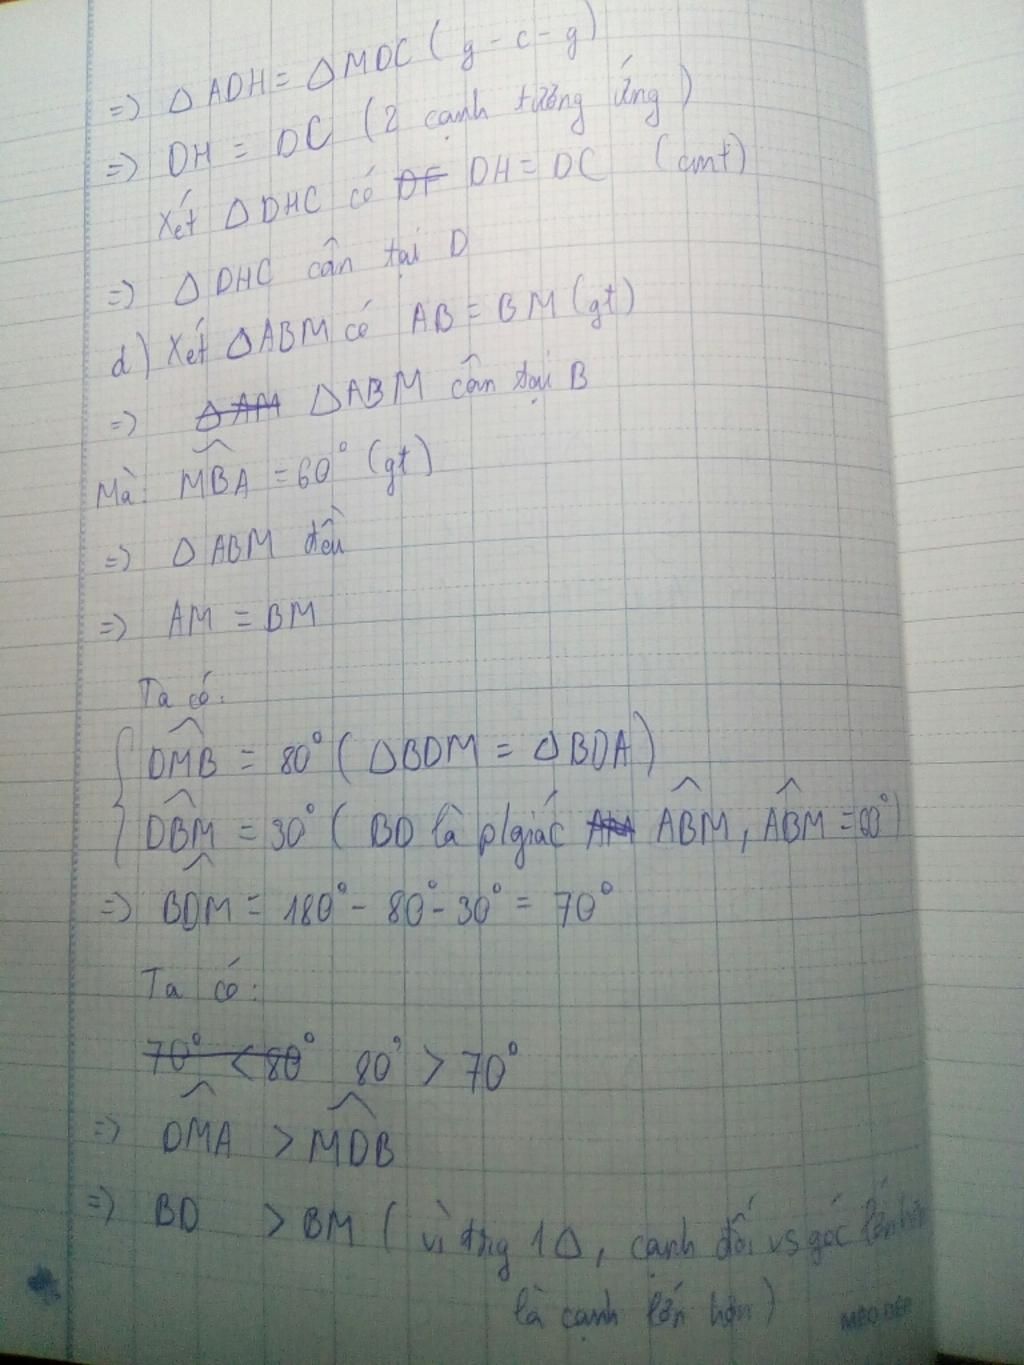 => Δ ADH = Δ MDC ( g - c - g )
=> DH = DC ( 2 cạnh tương ứng )
Xét Δ DHC có DF DH = DC (cmt)
=> Δ DHC cân tại D
d) Xét ΔABM có AB = BM (gt)
=> Δ AM ΔABM cân tại B
Mà: MBA = 60° (gt)
=> Δ ABM đều
=> AM = BM
Ta có:
DMB = 80° ( ΔBDM = ΔBDA )
DBM = 30° ( BD là p/giác AM ABM, ABM = 60° )
=> BDM = 180° - 80° - 30° = 70°
Ta có:
70° < 80° 80° > 70°
=> DMA > MDB
=> BD > BM ( vì trg 1Δ, cạnh đối vs góc lớn hơn
là cạnh lớn hơn )